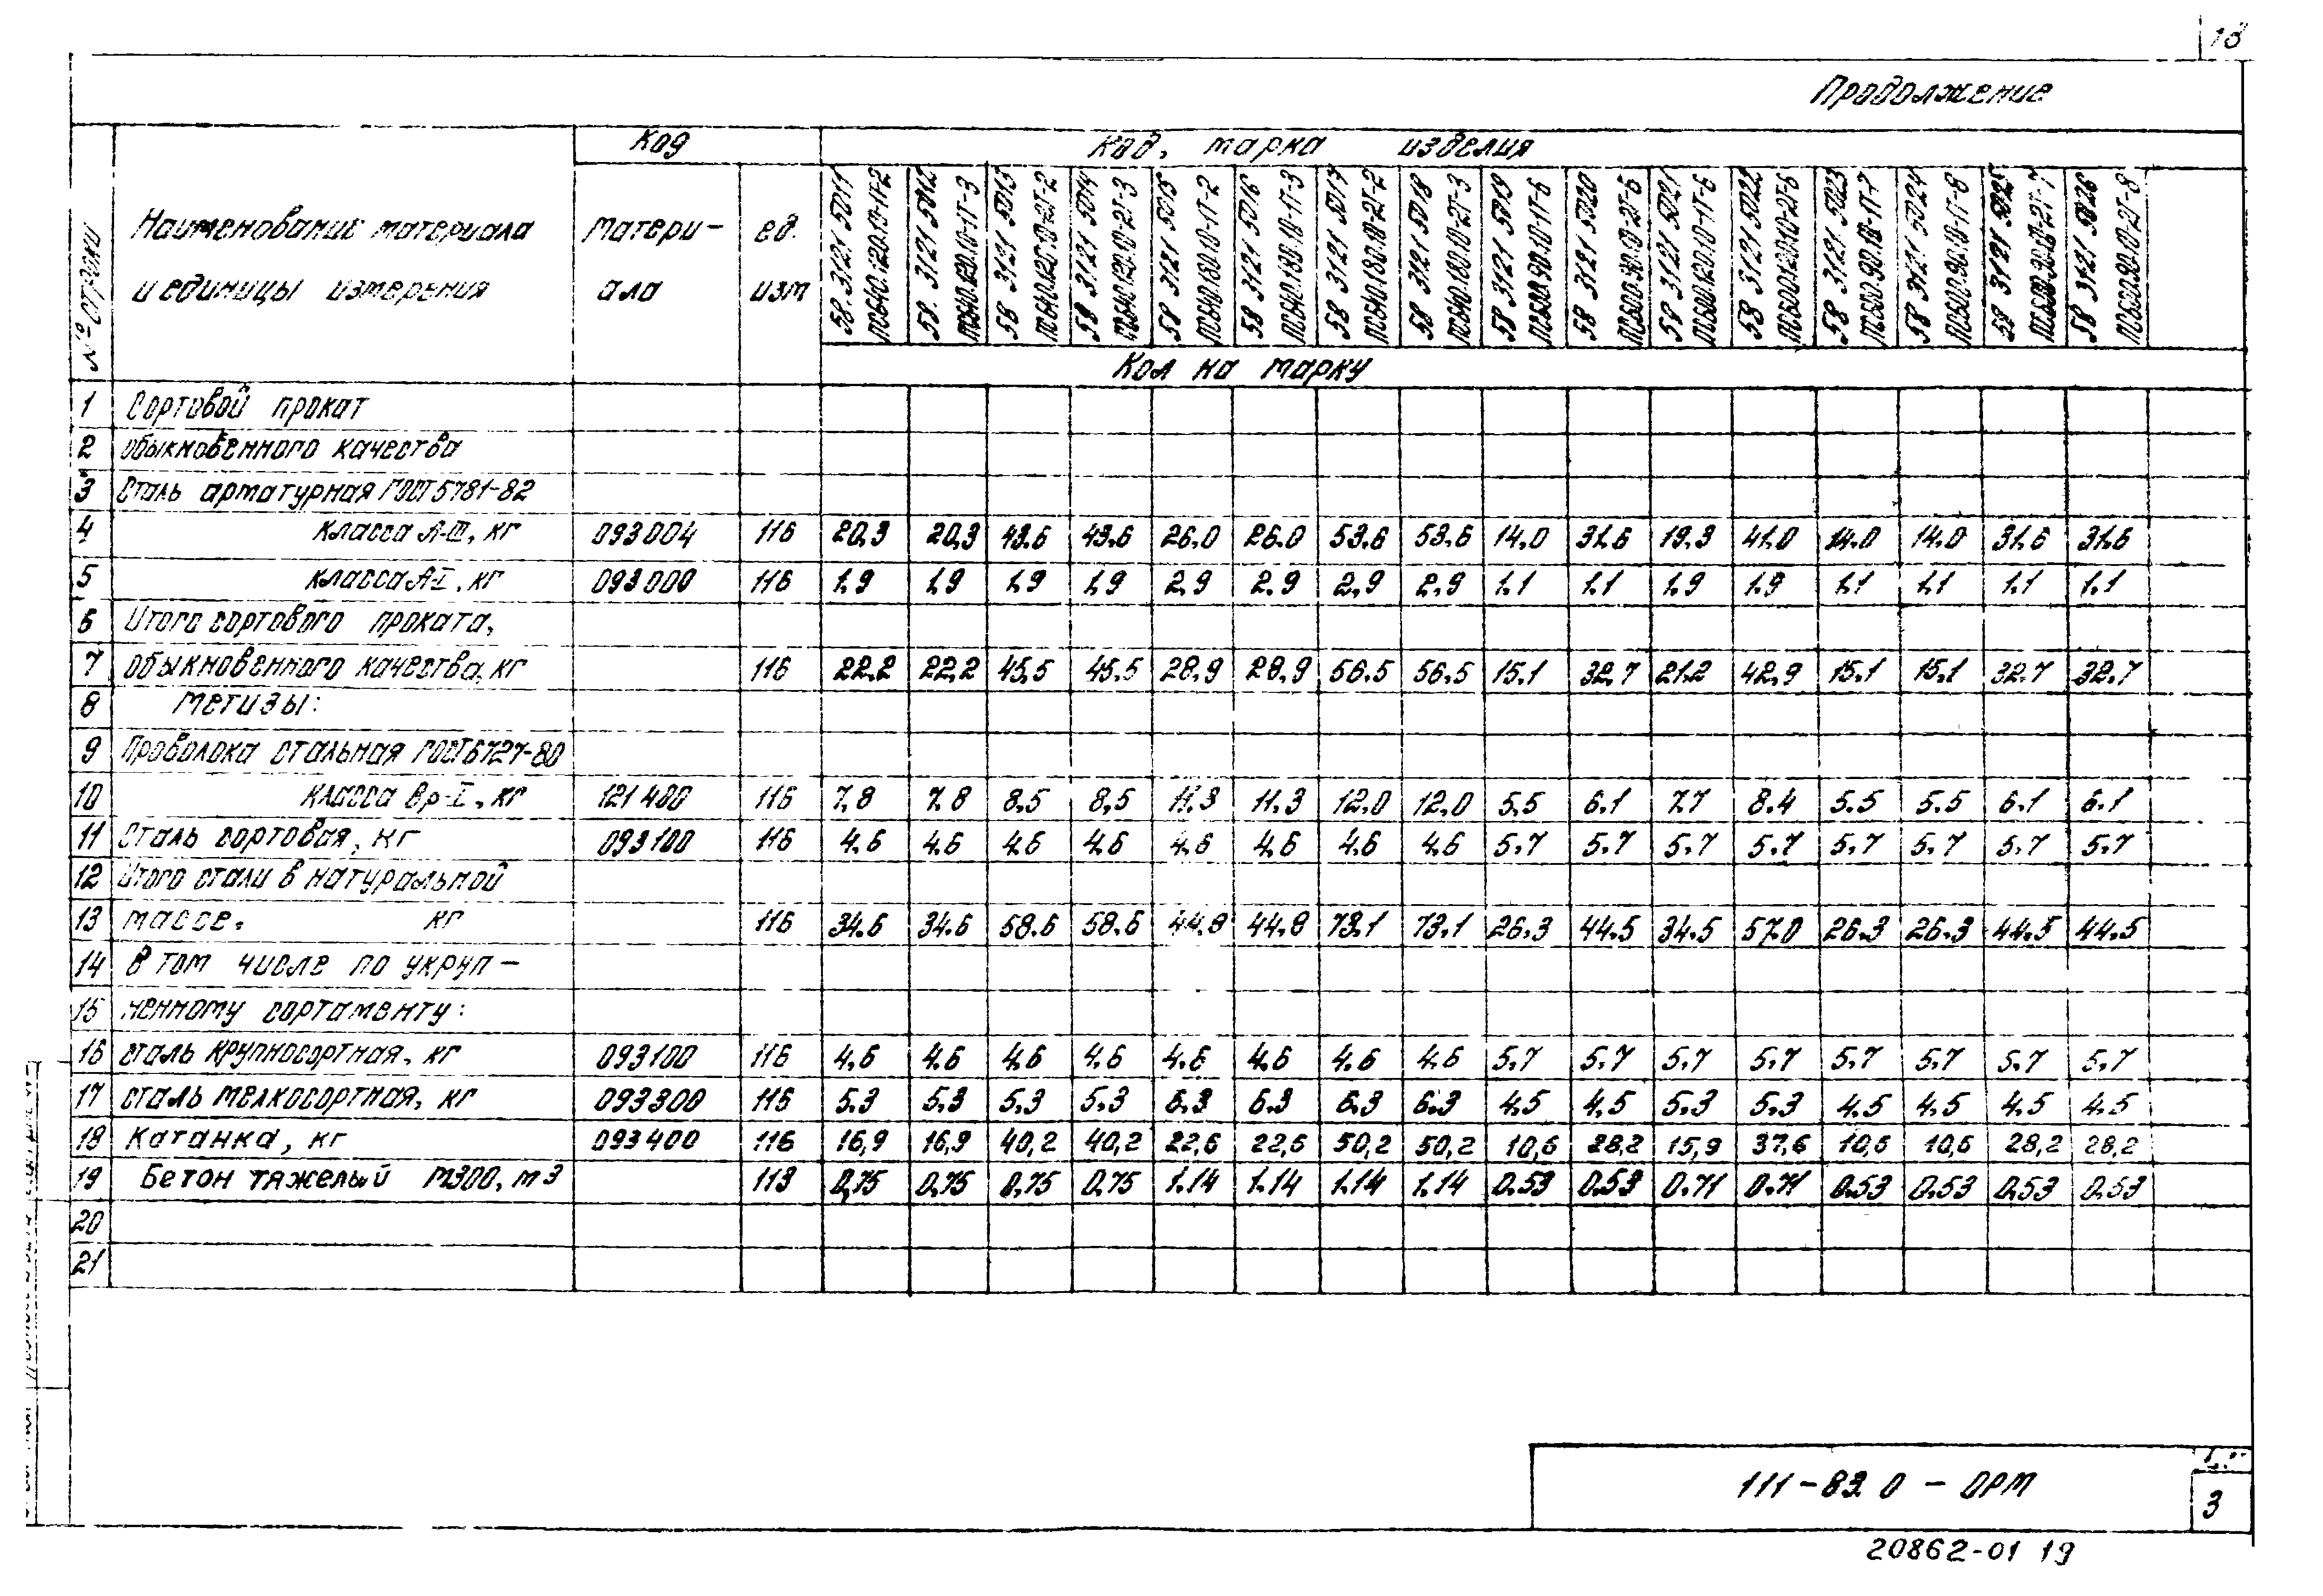 18
Продолжение
№ строки
Наименование материала
и единицы измерения
Код
матери-
ала
ед.
изм
Код, марка изделия
58 3121 5011
58 3121 5012
58 3121 5013
58 3121 5014
58 3121 5015
58 3121 5016
58 3121 5017
58 3121 5018
58 3121 5019
58 3121 5020
58 3121 5021
58 3121 5022
58 3121 5023
58 3121 5024
58 3121 5025
58 3121 5026
Кол на марку
1 Сортовой прокат
2 обыкновенного качества
3 Сталь арматурная ГОСТ 5781-82
4 класса А-III, кг 093004 116 20,3 20,3 43.6 43.6 26.0 26.0 53.6 53.6 14.0 31.6 19.3 41.0 14.0 14.0 31.6 31.6
5 класса А-I, кг 093000 116 1.9 1.9 1.9 1.9 2.9 2.9 2,9 2.9 1.1 1.1 1.9 1.9 1.1 1.1 1.1 1.1
6 Итого сортового проката,
7 обыкновенного качества, кг 116 22.2 22.2 45.5 45.5 28.9 28.9 56.5 56.5 15.1 32.7 21.2 42.9 15.1 15.1 32.7 32.7
8 Метизы:
9 Проволока стальная ГОСТ 6727-80
10 класса Вр-I, кг 121400 116 7.8 7.8 8.5 8.5 11.3 11.3 12.0 12.0 5.5 6.1 7.7 8.4 5.5 5.5 6.1 6.1
11 Сталь сортовая, кг 093100 116 4.6 4.6 4.6 4.6 4.6 4.6 4.6 4.6 5.7 5.7 5.7 5.7 5.7 5.7 5.7 5.7
12 Итого стали в натуральной
13 массе, кг 116 34.6 34.6 58.6 58.6 44.8 44.8 73.1 73.1 26.3 44.5 34.5 57.0 26.3 26.3 44.5 44.5
14 В том числе по укруп-
15 ненному сортаменту:
16 сталь крупносортная, кг 093100 116 4.6 4.6 4.6 4.6 4.6 4.6 4.6 4.6 5.7 5.7 5.7 5.7 5.7 5.7 5.7 5.7
17 сталь мелкосортная, кг 093300 116 5.3 5.3 5.3 5.3 6.3 6.3 6.3 6.3 4.5 4.5 5.3 5.3 4.5 4.5 4.5 4.5
18 Катанка, кг 093400 116 16,9 16,9 40,2 40,2 22,6 22,6 50,2 50,2 10,6 28,2 15,9 37.6 10,6 10,6 28,2 28,2
19 Бетон тяжелый М300, м3 113 0,75 0,75 0,75 0.75 1.14 1.14 1.14 1.14 0.53 0.53 0.71 0.71 0.53 0.53 0.53 0.53
20
21
111-83.0 - ОРМ
3
20862-01 19